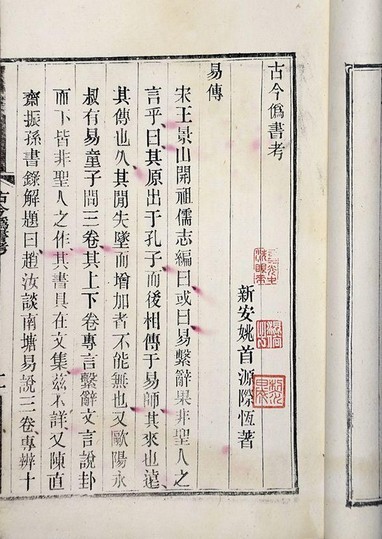 古今僞書考
新安姚首源際恆著
易傳
宋王景山開祖儒志編曰或曰易繫辭果非聖人之
言乎曰其原出于孔子而後相傳于易師其來也遠
其傳也久其閒失墜而增加者不能無也又歐陽永
叔有易童子問三卷其上下卷專言繫辭文言說卦
而下皆非聖人之作其書具在文集茲不詳又陳直
齋振孫書錄解題曰趙汝談南塘易說三卷專辨十
古今僞書考